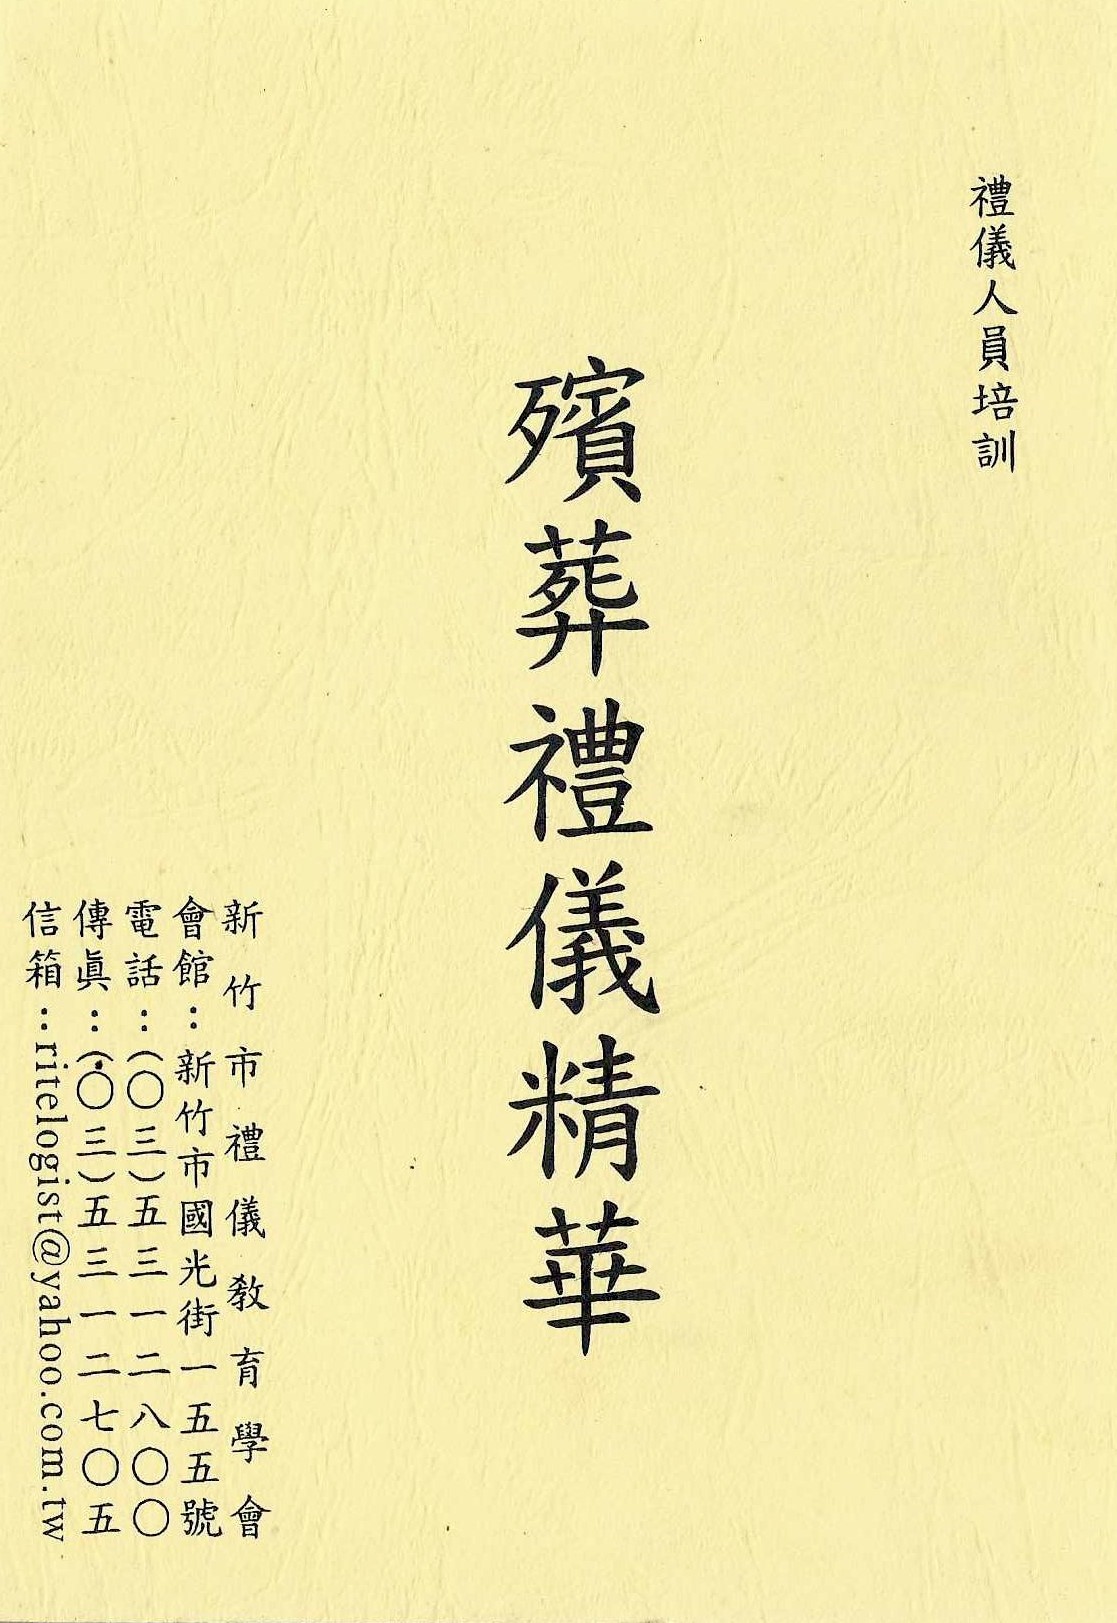 禮儀人員培訓
殯葬禮儀精華
新竹市禮儀教育學會
會館：新竹市國光街一五五號
電話：(〇三)五三一二八〇〇
傳眞：(〇三)五三一二七〇五
信箱：ritelogist@yahoo.com.tw